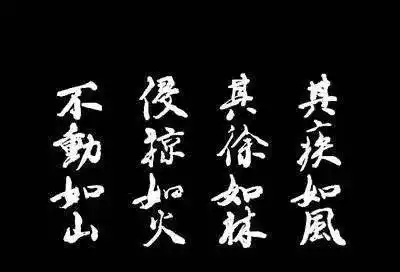 其疾如風
其徐如林
侵掠如火
不動如山